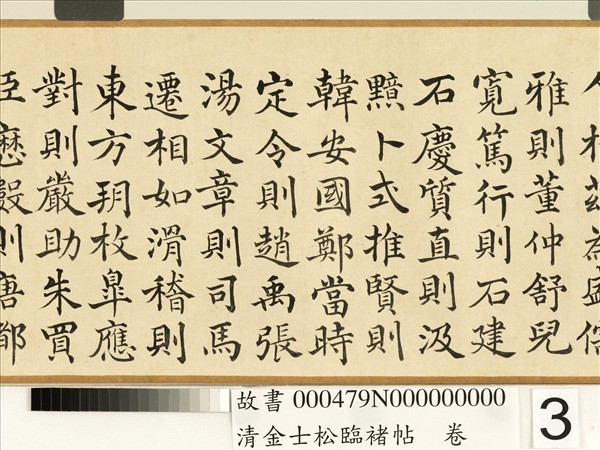 人於茲為盛儒
雅則董仲舒兒
寬篤行則石建
石慶質直則汲
黯卜式推賢則
韓安國鄭當時
定令則趙禹張
湯文章則司馬
遷相如滑稽則
東方朔枚皐應
對則嚴助朱買
臣歷數則唐都
故書 000479N000000000
清金士松臨褚帖 卷
3